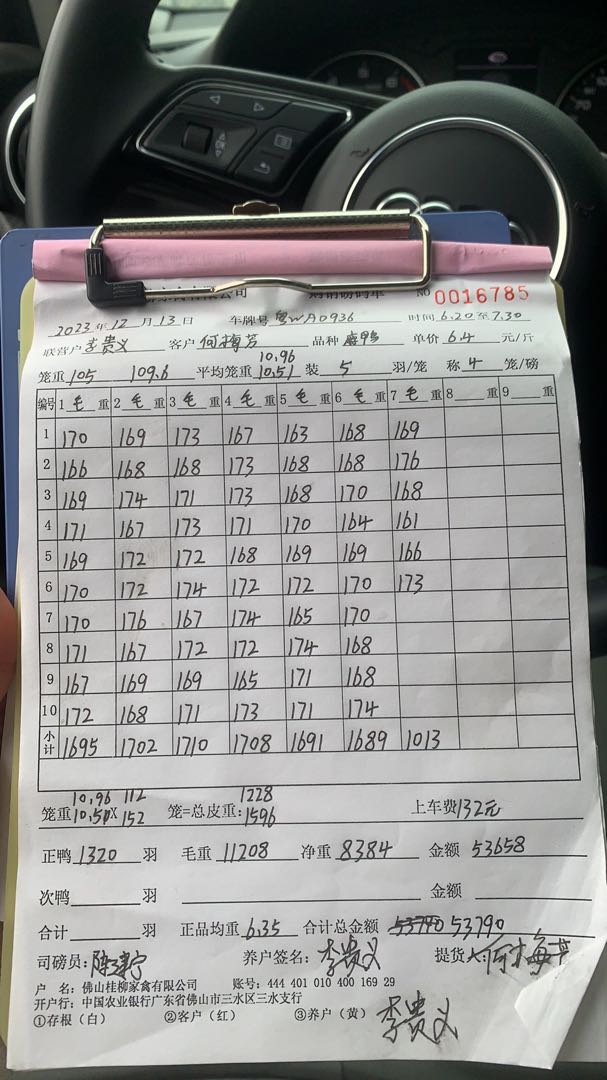 家禽有限公司 购销磅码单 NO 0016785
2023年12月13日 车牌号 粤WA0936 时间 6.20至7.30
联营户 李贵义 客户 何梅芳 品种 单价 6.4 元/斤
10.96
笼重 105 109.6 平均笼重 10.51 装 5 羽/笼 称 4 笼/磅
编号 1毛重 2毛重 3毛重 4毛重 5毛重 6毛重 7毛重 8重 9重
1 170 169 173 167 163 168 169
2 166 168 168 173 168 168 176
3 169 174 171 173 168 170 168
4 171 167 173 171 170 164 161
5 169 172 172 168 169 169 166
6 170 172 174 172 172 170 173
7 170 176 167 174 165 170
8 171 167 172 172 174 168
9 167 169 169 165 171 168
10 172 168 171 173 171 174
小计 1695 1702 1710 1708 1691 1689 1013
10.96 112 1228
笼重 10.51 X 152 笼=总皮重: 1596 上车费 132元
正鸭 1320 羽 毛重 11208 净重 8384 金额 53658
次鸭 羽 金额
合计 羽 正品均重 6.35 合计总金额 53790 53790
司磅员: 养户签名: 李贵义 提货人: 何梅芳
户 名: 佛山桂柳家禽有限公司 账号: 444 401 010 400 169 29
开户行: 中国农业银行广东省佛山市三水区三水支行
①存根(白) ②客户(红) ③养户(黄) 李贵义